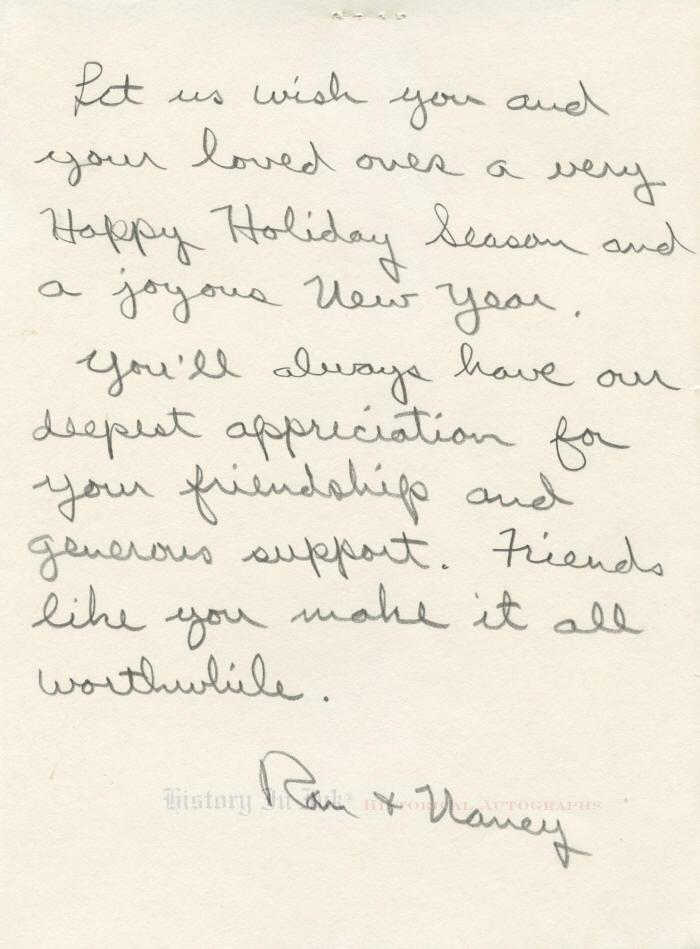 Let us wish you and
your loved ones a very
Happy Holiday Season and
a joyous New Year.
You'll always have our
deepest appreciation for
your friendship and
generous support. Friends
like you make it all
worthwhile.
Ron & Nancy
History In Ink® Historical Autographs